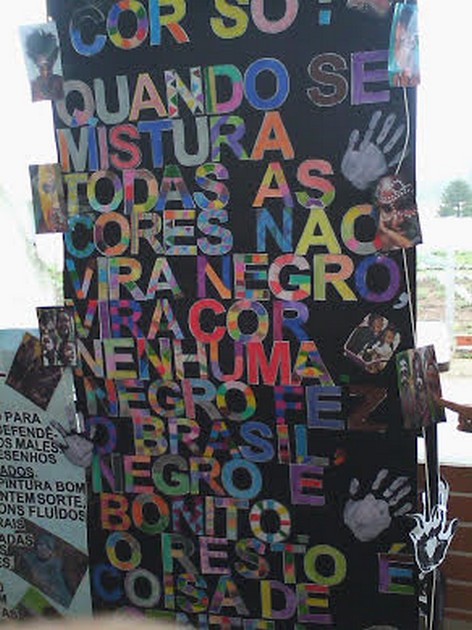 COR SÓ!
QUANDO SE
MISTURA
TODAS AS
CORES NÃO
VIRA NEGRO,
VIRA COR
NENHUMA.
NEGRO FEZ
O BRASIL,
NEGRO É
BONITO.
O RESTO É
COISA DE
O PARA
DEFENDE-
OS MALES.
ESENHOS
ADOS.
PINTURA BOM
NTEM SORTE,
ONS FLUÍDOS
RAIS
ADAS